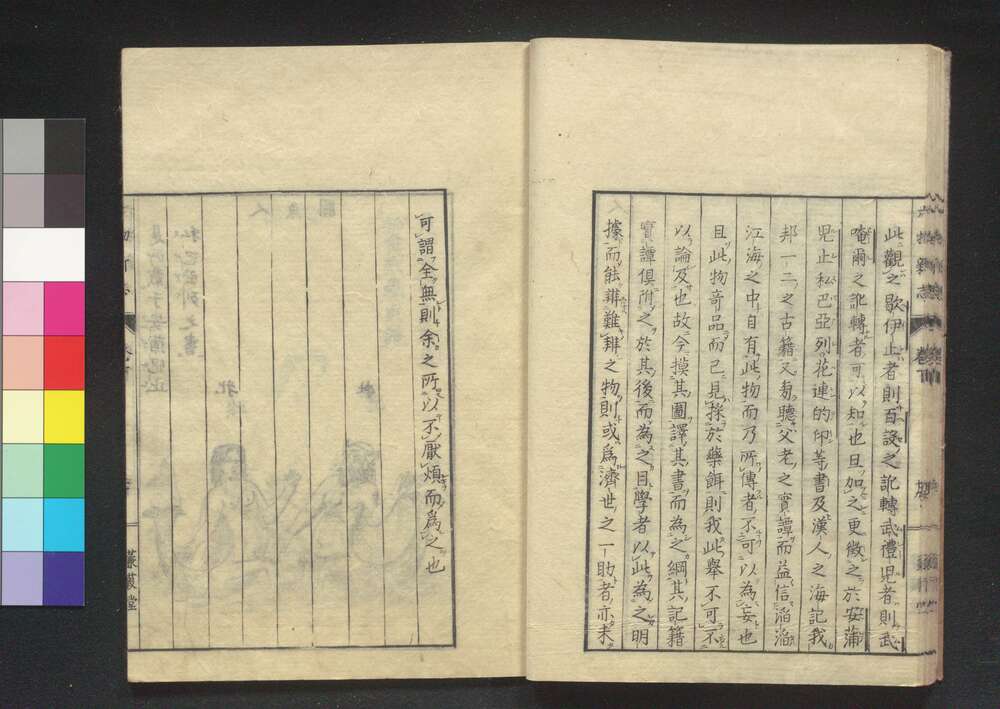 此觀之歇伊止者則百設之訛轉武禮児者則武
唵爾之訛轉者可以知也且加之更徴之於安蒲
児止私巴亞列花連的印等書及漢人之海記我
邦一二之古籍又旁聽父老之實譚而益信滔滔
江海之中自有此物而乃所傳者不可以為妄也
且此物奇品而已見採於藥餌則我此舉不可不
以論及也故今摸其圖譯其書而為之綱其記籍
實譚俱附之於其後而為之目學者以此為之明
據而能辨難辨之物則或爲濟世之一助者亦未
可謂全無則余之所以不厭煩而爲之也
蒹葭堂